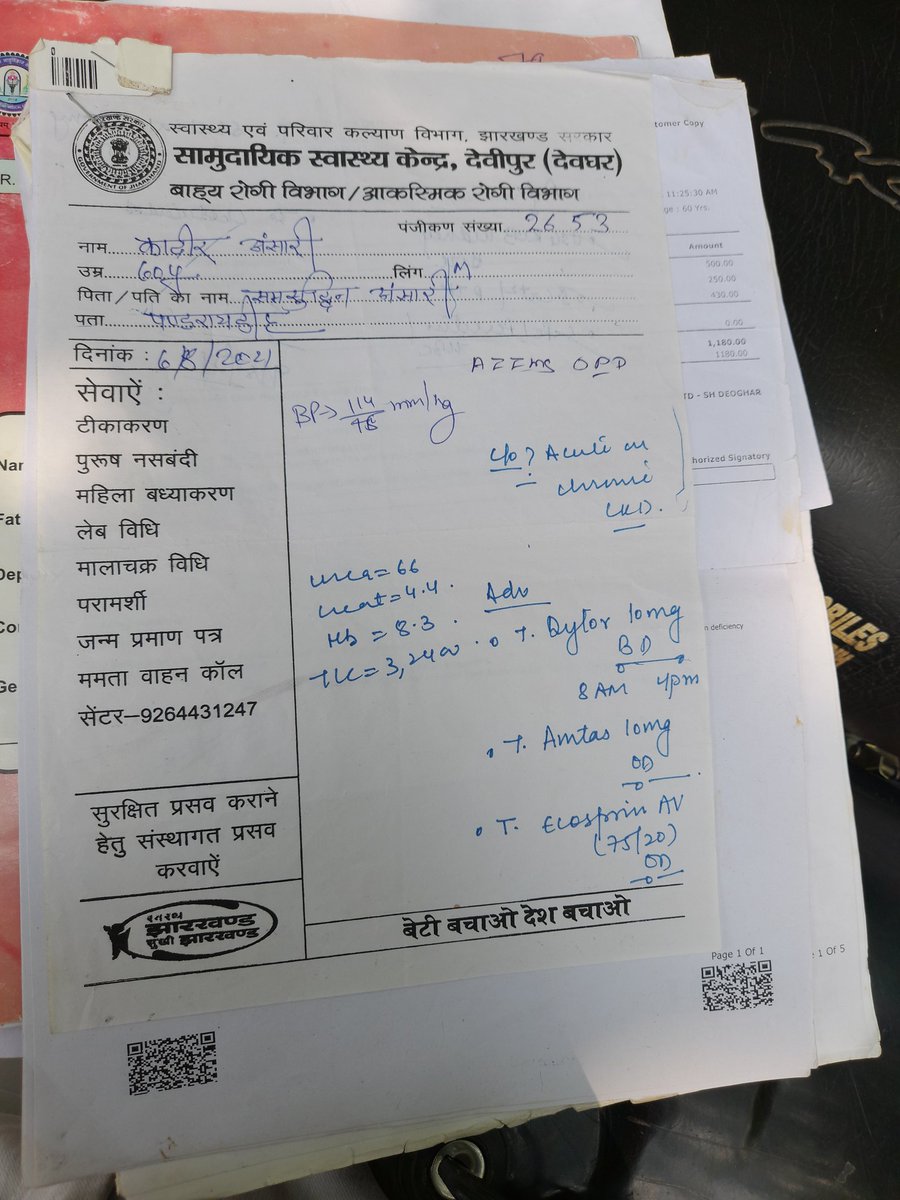 स्वास्थ्य एवं परिवार कल्याण विभाग, झारखण्ड सरकार
सामुदायिक स्वास्थ्य केन्द्र, देवीपुर (देवघर)
बाह्य रोगी विभाग/आकस्मिक रोगी विभाग
पंजीकण संख्या 2653
नाम कादीर अंसारी
उम्र 60y लिंग M
पिता/पति का नाम अंसारी
पता
दिनांक : 6/8/2021
AIIMS OPD
सेवाऐं :
टीकाकरण
पुरूष नसबंदी
महिला बध्याकरण
लेब विधि
मालाचक्र विधि
परामर्शी
जन्म प्रमाण पत्र
ममता वाहन कॉल
सेंटर–9264431247
BP→ 114/ mm/hg
c/o ? Acute on
chronic
CKD.
urea = 66
creat = 4.4.
Hb = 8.3.
TLC = 3,2400.
Adv
• T. Dytor 10mg
BD
8AM 4pm
• T. Amtas 10mg
OD
• T. Ecosprin AV
(75/20)
OD
सुरक्षित प्रसव कराने
हेतु संस्थागत प्रसव
करवाऐं
झारखण्ड
सुखी झारखण्ड
बेटी बचाओ देश बचाओ
GOVERNMENT OF JHARKHAND
tomer Copy
11:25:30 AM
ge : 60 Yrs.
Amount
500.00
250.00
430.00
0.00
1,180.00
1180.00
TD - SH DEOGHAR
horized Signatory
n deficiency
Page 1 Of 1
1 Of 5
R.
Nar
Fat
Dep
Co
Ge
BILES